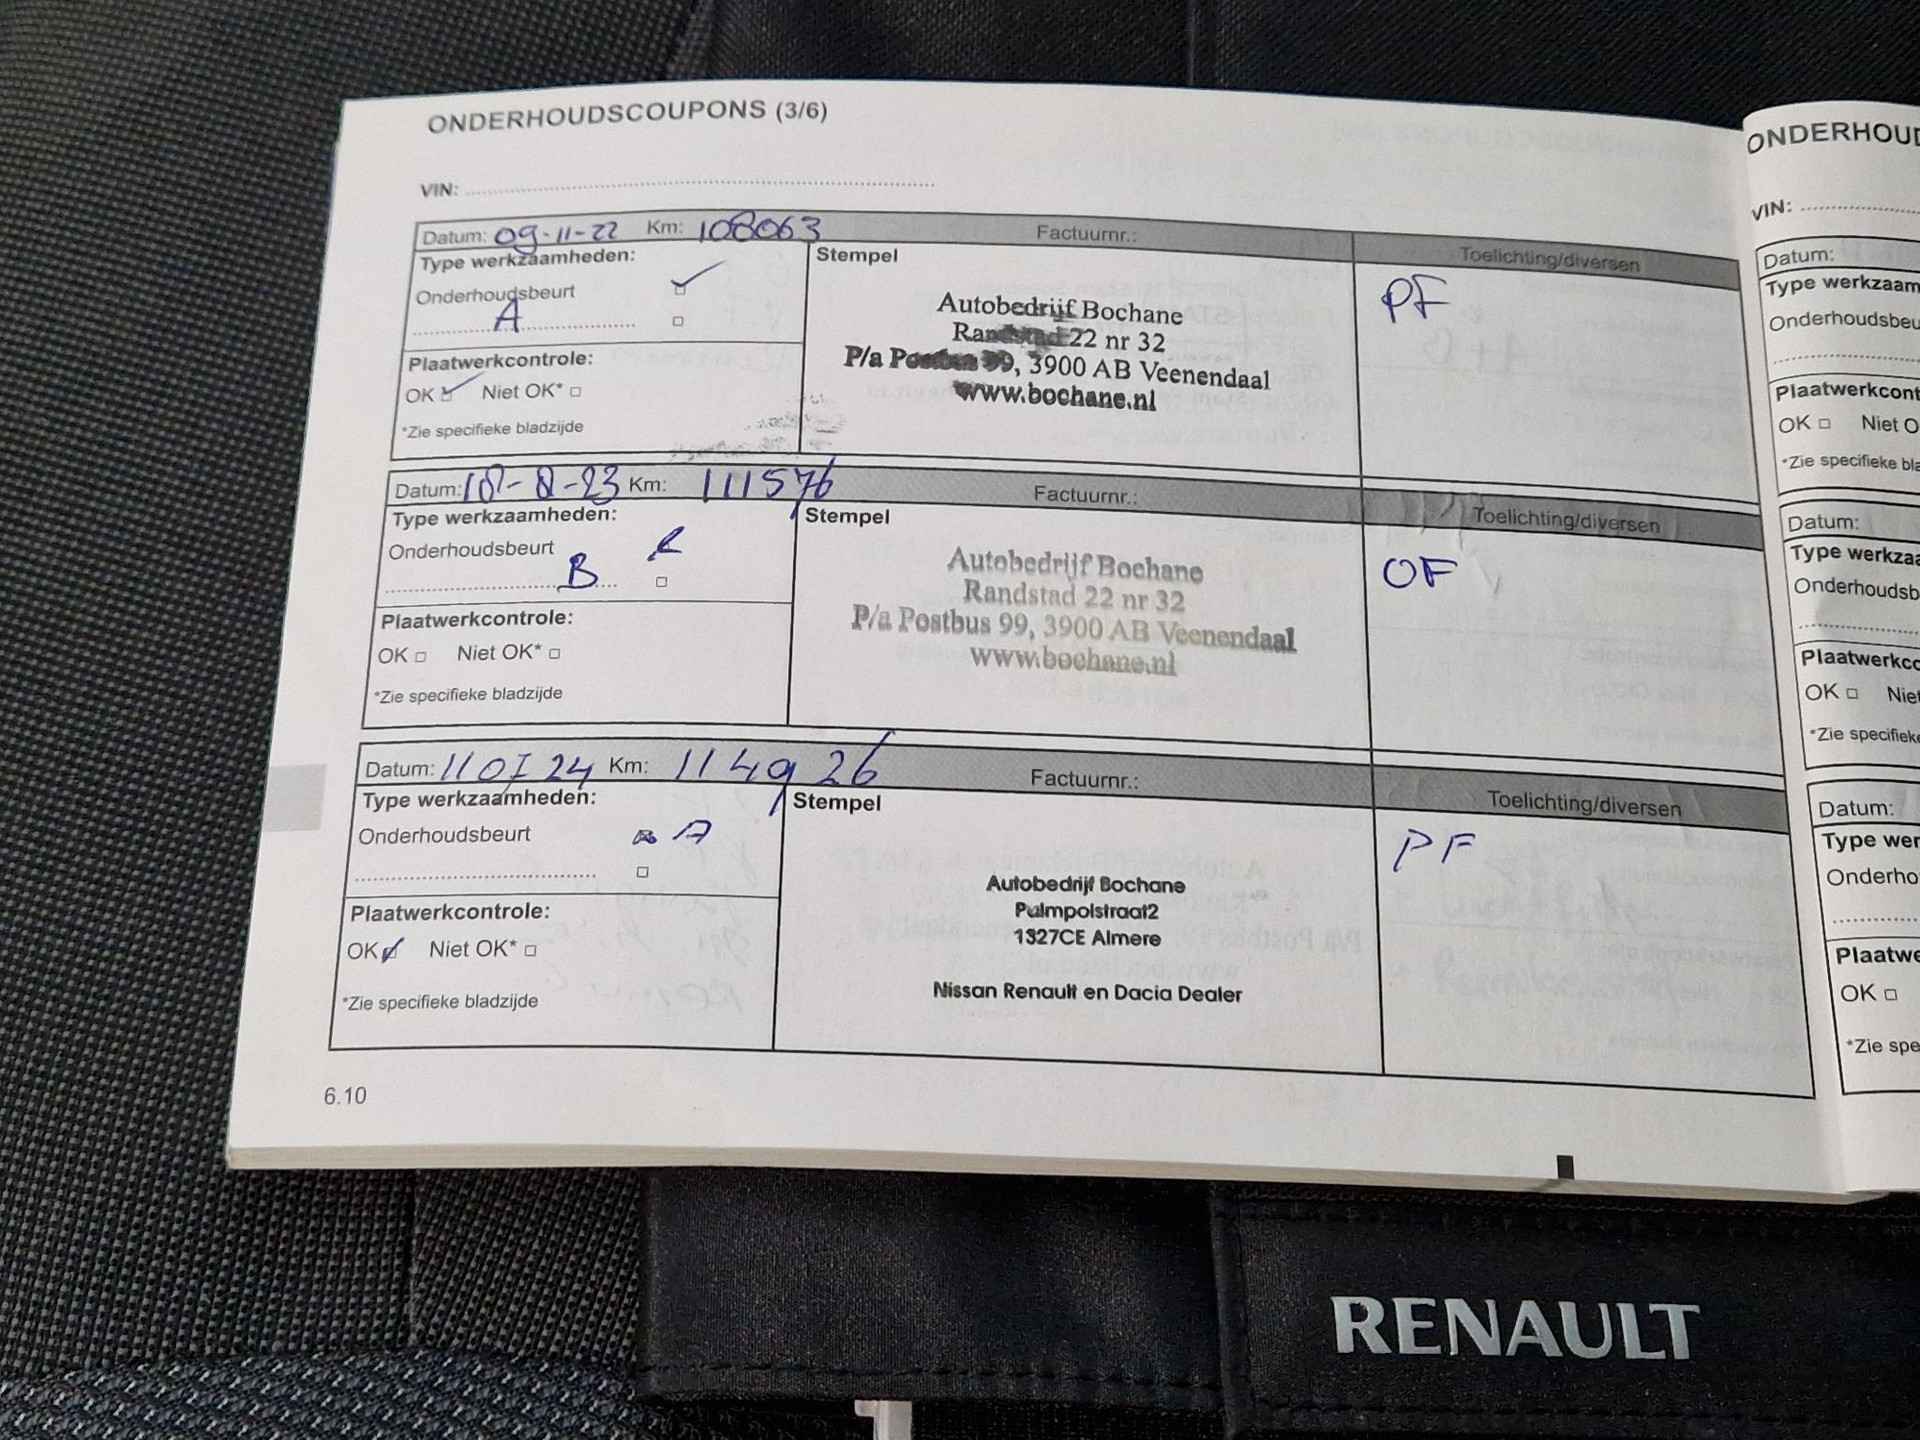 ONDERHOUDSCOUPONS (3/6)
VIN:
Datum: 09-11-22 Km: 108063 Factuurnr.:
Type werkzaamheden: Stempel Toelichting/diversen
Onderhoudsbeurt
A
PF
Autobedrijf Bochane
Randstad 22 nr 32
P/a Postbus 99, 3900 AB Veenendaal
www.bochane.nl
Plaatwerkcontrole:
OK Niet OK*
*Zie specifieke bladzijde
Datum: 18-8-23 Km: 111576 Factuurnr.:
Type werkzaamheden: Stempel Toelichting/diversen
Onderhoudsbeurt
B
OF
Autobedrijf Bochane
Randstad 22 nr 32
P/a Postbus 99, 3900 AB Veenendaal
www.bochane.nl
Plaatwerkcontrole:
OK Niet OK*
*Zie specifieke bladzijde
Datum: 110724 Km: 114926 Factuurnr.:
Type werkzaamheden: Stempel Toelichting/diversen
Onderhoudsbeurt A
PF
Autobedrijf Bochane
Palmpolstraat2
1327CE Almere
Nissan Renault en Dacia Dealer
Plaatwerkcontrole:
OK Niet OK*
*Zie specifieke bladzijde
6.10
ONDERHOUD
VIN:
Datum:
Type werkzaam
Onderhoudsbeu
Plaatwerkcont
OK Niet O
*Zie specifieke bla
Datum:
Type werkza
Onderhoudsb
Plaatwerkco
OK Niet
*Zie specifieke
Datum:
Type wer
Onderho
Plaatwe
OK
*Zie spe
RENAULT